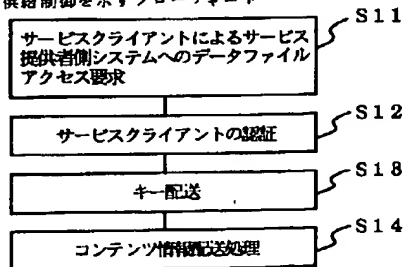 供給制御を示すフローチャート
S11
サービスクライアントによるサービス
提供者側システムへのデータファイル
アクセス要求
S12
サービスクライアントの認証
S18
キー配送
S14
コンテンツ情報配送処理